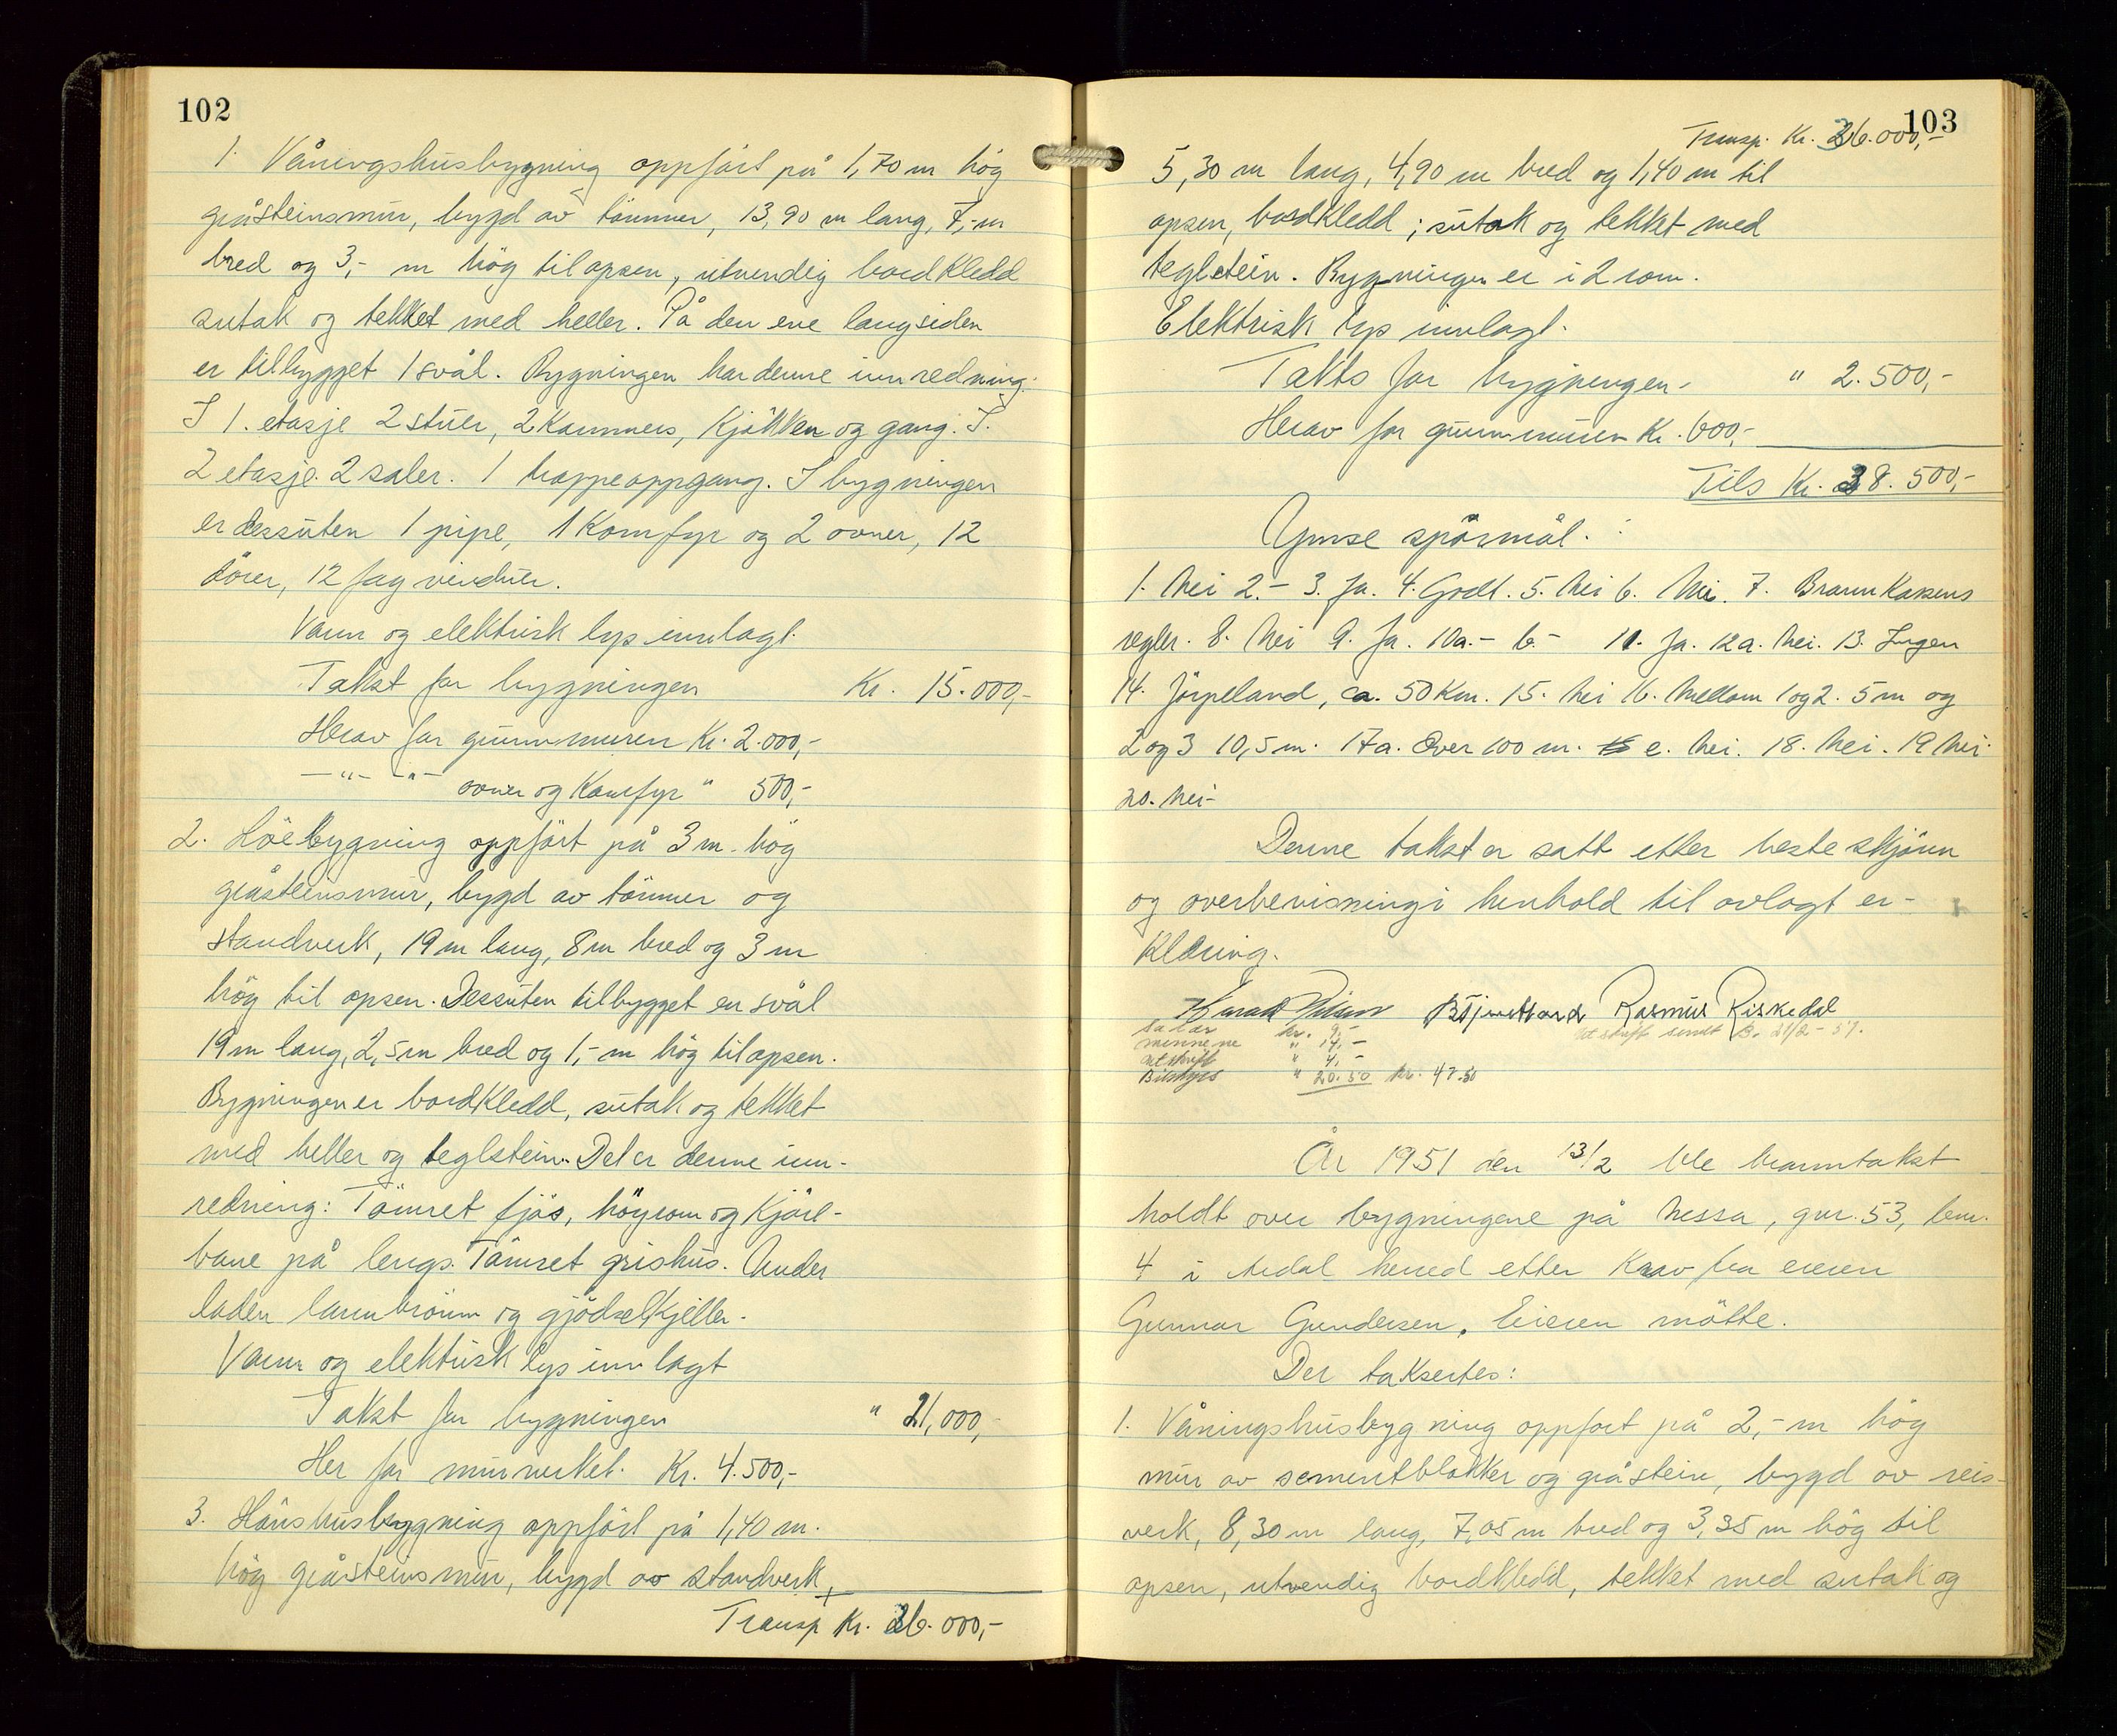 102
1. Våningshusbygning oppfört på 1,70 m hög
gråsteinsmur, bygd av tömmer, 13,90 m lang, 7,- m
bred og 3,- m hög til opsen, utvendig bordkledd
sutak og tekket med heller. På den ene langsiden
er tilbygget 1 svål. Bygningen har denne innredning:
I 1. etasje 2 stuer, 2 kammers, kjökken og gang. I.
2 etasje. 2 saler. 1 trappeoppgang. I bygningen
er dessuten 1 pipe, 1 komfyr og 2 ovner, 12
dörer, 12 fag vinduer.
Vann og elektrisk lys innlagt.
Takst for bygningen Kr. 15.000,-
Herav for grunnmuren Kr. 2.000,-
-"- -"- ovner og komfyr " 500,-
2. Löebygning oppfört på 3 m. hög
gråsteinsmur, bygd av tömmer og
standverk, 19 m lang, 8 m bred og 3 m
hög til opsen. Dessuten tilbygget en svål
19 m lang, 2,5 m bred og 1,- m hög til opsen.
Bygningen er bordkledd, sutak og tekket
med heller og teglstein. Det er denne inn-
redning: Tömret fjös, höyrom og kjöre-
bane på lengs. Tömret grishus. Under
laden landbrönn og gjödselkjeller.
Vann og elektrisk lys innlagt
Takst for bygningen " 21,000,-
Her for murverket. Kr. 4.500,-
3. Hönshusbygning oppfört på 1,40 m.
hög gråsteinsmur, bygd av standverk,
Transp Kr. 36.000,-
103
Transp. Kr. 36.000,-
5,30 m lang, 4,90 m bred og 1,40 m til
opsen, bordkledd; sutak og tekket med
teglstein. Bygningen er i 2 rom.
Elektrisk lys innlagt.
Takts for bygningen. " 2.500,-
Herav for grunnmuren Kr. 600,-
Tils Kr. 38.500,-
Ymse spörsmål:
1. Nei 2.- 3. Ja. 4. Godt. 5. Nei 6. Nei. 7. Brannkassens
regler. 8. Nei 9. Ja. 10a.- b.- 11. Ja. 12a. Nei. 13. Ingen
14. Jörpeland, ca. 50 Km. 15. Nei 16. Mellom 1 og 2. 5 m og
2 og 3 10,5 m. 17a. Over 100 m. e. Nei. 18. Nei. 19 Nei.
20. Nei-
Denne takst er satt etter beste skjönn
og overbevisning i henhold til avlagt er-
klæring.
Rasmus Riskedal
Utskrift sendt B. 21/2-51.
kr. 9,-
mennene " 14,-
utskrift " 4,-
Bilskyss " 20.50 kr. 47.50
År 1951 den 13/2 ble branntakst
holdt over bygningene på Nessa, gnr. 53, bnr.
4 i Årdal herred etter krav fra eieren
Gunnar Gundersen. Eieren mötte.
Der taksertes:
1. Våningshusbygning oppfört på 2,- m hög
mur av sementblokker og gråstein, bygd av reis-
verk, 8,30 m lang, 7,05 m bred og 3,35 m hög til
opsen, utvendig bordkledd, tekket med sutak og